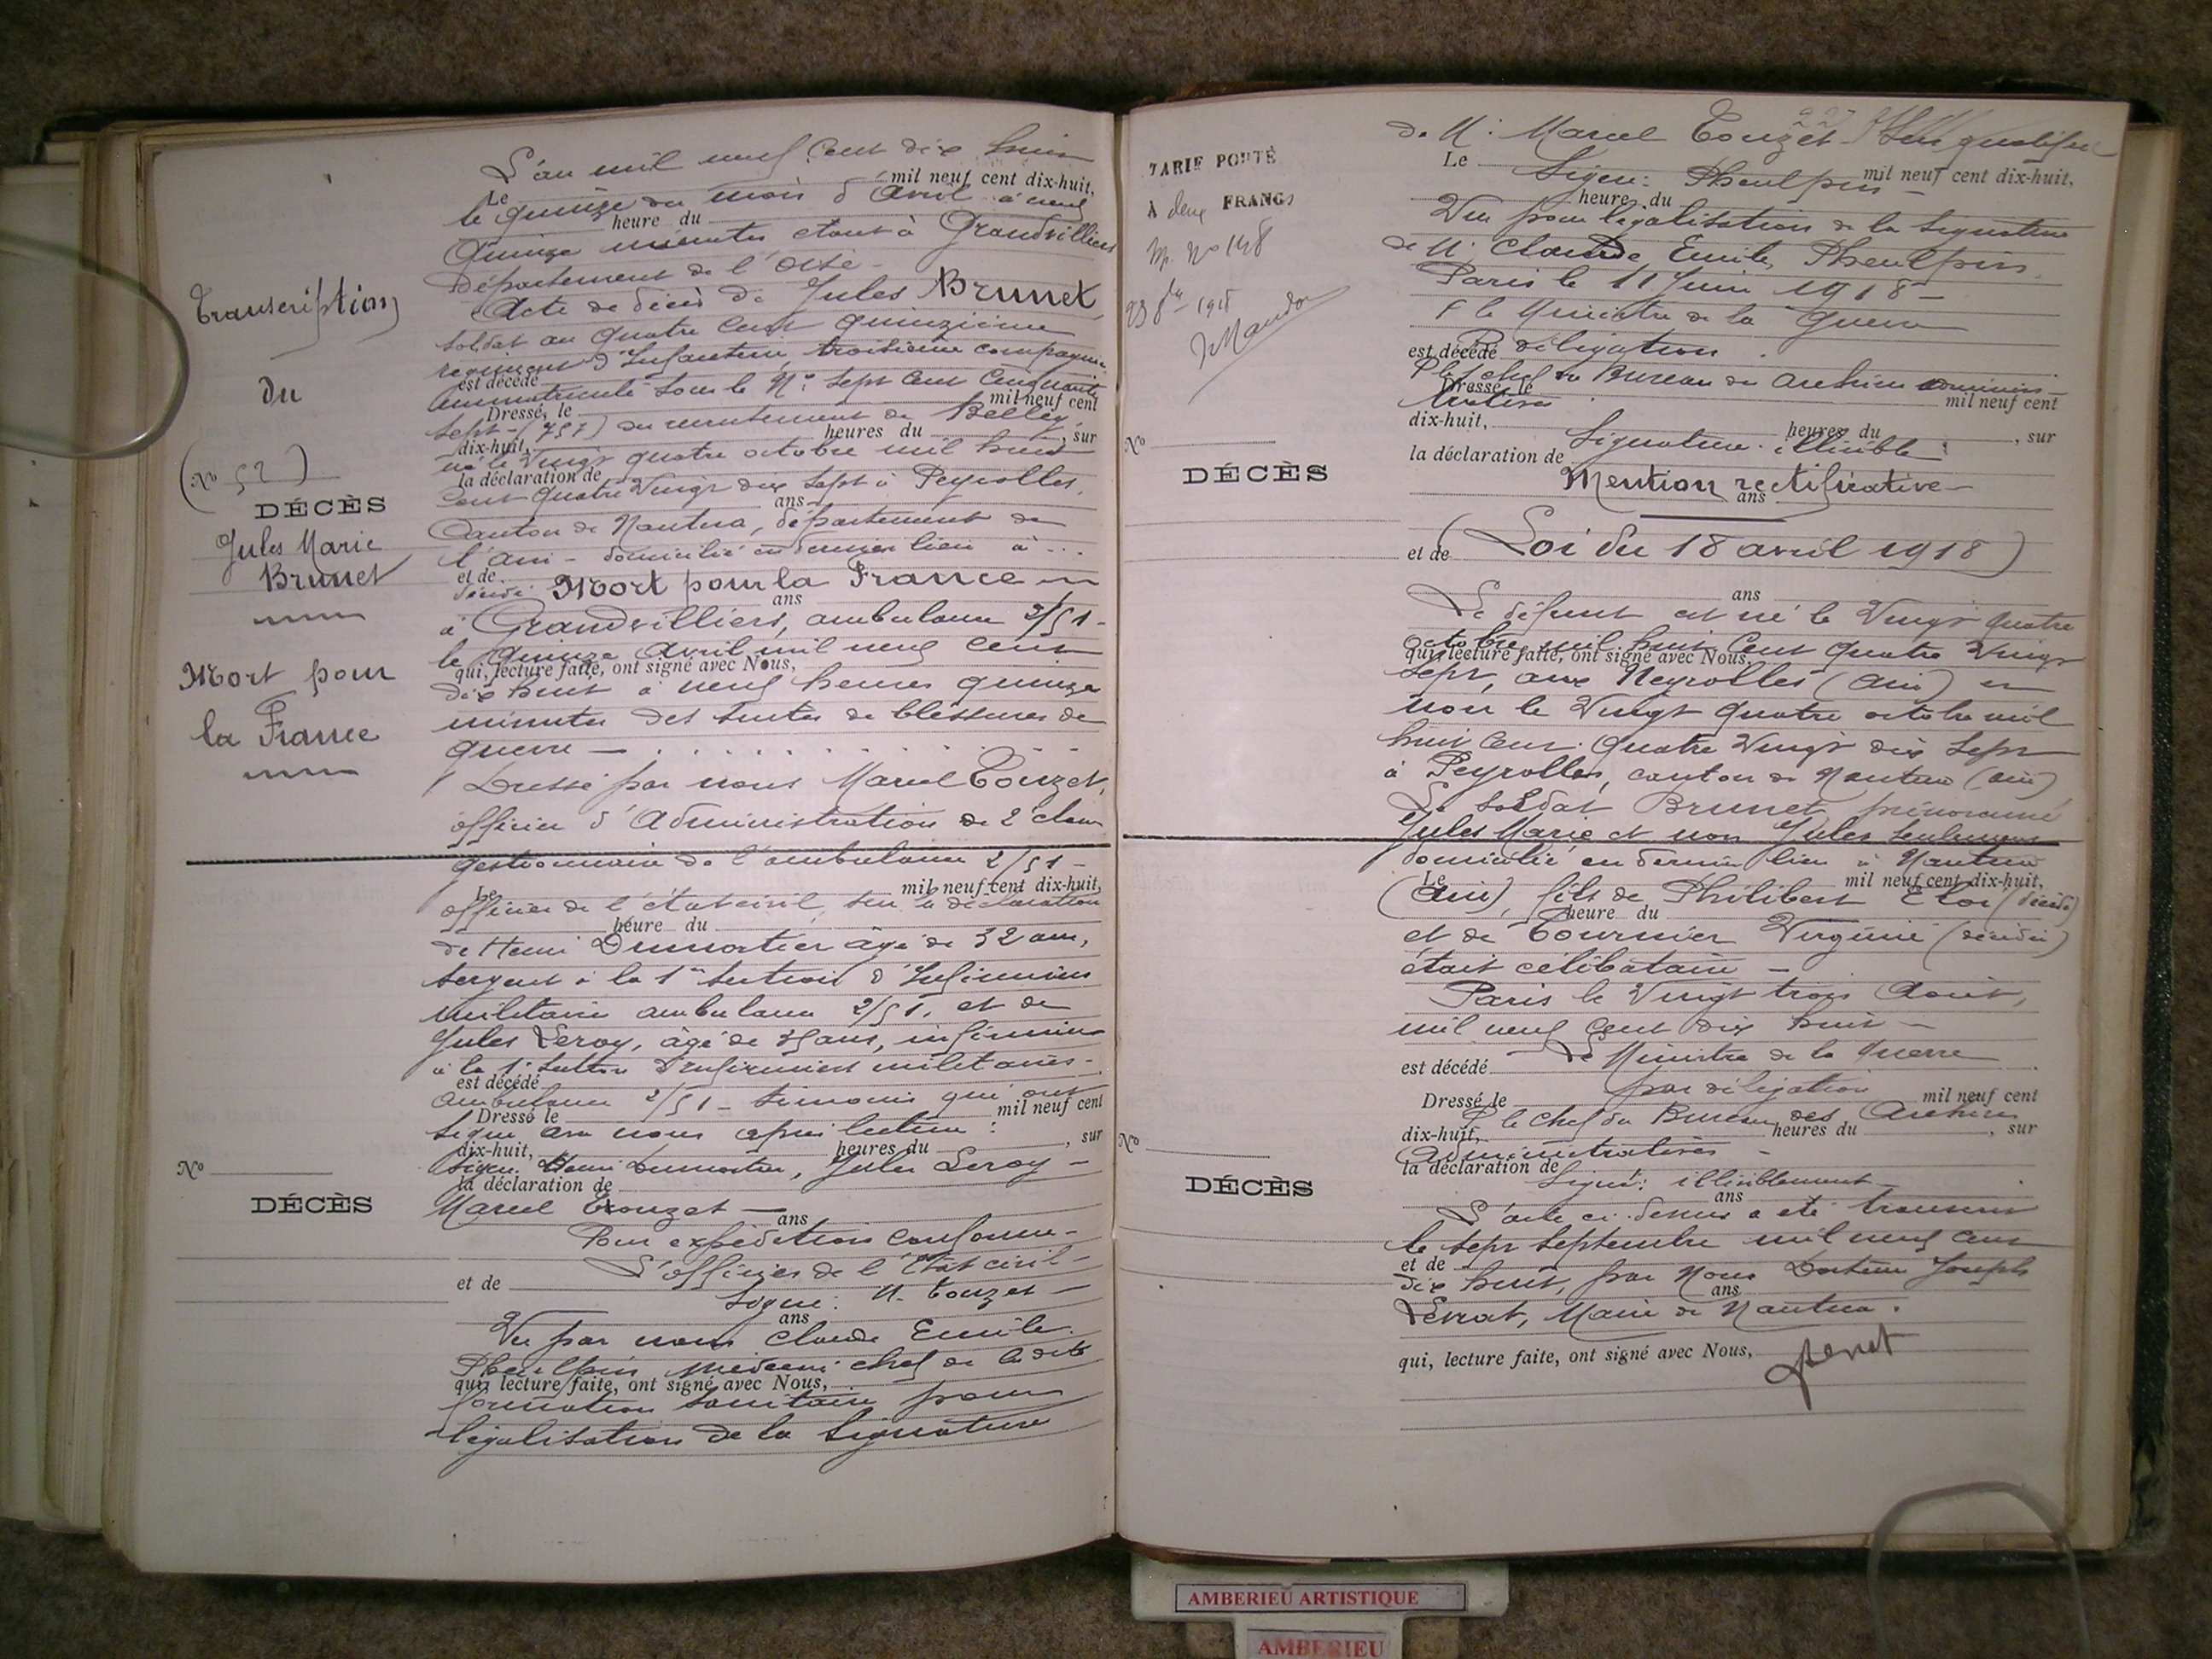 Transcription
du
(No 52)
DÉCÈS
Jules Marie
Brunet
Mort pour
la France
L'an mil neuf cent dix huit
Le mil neuf cent dix-huit,
le quinze du mois d'Avril à neuf
heure du
Quinze minutes étant à Grandvilliers
Département de l'Oise -
Acte de décès de Jules Brunet,
soldat au quatre cent quinzième
régiment d'Infanterie, troisième compagnie
est décédé
immatriculé sous le No: sept cent cinquante
Dressé, le mil neuf cent
sept - (757) du recrutement de Belley,
dix-huit, heures du , sur
né le Vingt quatre octobre mil huit
la déclaration de
cent quatre Vingt dix sept à Peyrolles,
ans
Canton de Nantua, département de
l'Ain - domicilié en dernier lieu à ...
et de
décédé Mort pour la France
ans
à Grandvilliers, ambulance 2/51 -
le Quinze Avril mil neuf cent
qui, lecture faite, ont signé avec Nous,
dix huit à neuf heures quinze
minutes des suites de blessures de
guerre -
Dressé par nous Marcel Touzet,
officier d'Administration de 2e classe
gestionnaire de l'ambulance 2/51 -
Le mil neuf cent dix-huit,
officier de l'état civil, sur la déclaration
heure du
de Henri Dumortier âgé de 32 ans,
sergent à la 1re section d'Infirmiers
militaires ambulance 2/51, et de
Jules Leroy, âgé de 35 ans, infirmier
à la 1e section d'infirmiers militaires -
est décédé
ambulance 2/51 - témoins qui ont
Dressé le mil neuf cent
signé avec nous après lecture :
dix-huit, heures du , sur
Signé: Henri Dumortier, Jules Leroy -
la déclaration de
Marcel Touzet -
ans
Pour expédition conforme -
L'officier de l'Etat civil -
et de
Signé: M. Touzet -
ans
Vu par nous Claude Emile
Pheulpin médecin chef de la dite
qui, lecture faite, ont signé avec Nous,
formation sanitaire pour
légalisation de la signature
No
DÉCÈS
TARIF POSTÉ
À deux FRANCS
No 148
de M: Marcel Touzet - qualifié
Le mil neuf cent dix-huit,
Signé: Pheulpin -
heure du
Vu pour légalisation de la signature
de M. Claude Emile Pheulpin.
Paris le 11 Juin 1918 -
P le Ministre de la Guerre
est décédé
Pr délégation
P le chef du Bureau des archives adminis-
Dressé, le mil neuf cent
tratives
dix-huit, heures du , sur
Signature: illisible
la déclaration de
Mention rectificative -
ans
et de
(Loi du 18 avril 1918)
ans
Le défunt est né le Vingt quatre
octobre mil huit cent quatre Vingt
qui, lecture faite, ont signé avec Nous,
sept, aux Neyrolles (Ain) et
non le Vingt quatre octobre mil
huit cent quatre Vingt dix sept
à Peyrolles, canton de Nantua (Ain)
Le soldat Brunet, prénommé
Jules Marie et non Jules seulement
domicilié en dernier lieu à Nantua
Le mil neuf cent dix-huit,
(Ain), fils de Philibert Eloi (décédé)
heure du
et de Tournier Virginie (décédée)
était célibataire -
Paris le Vingt trois Août,
mil neuf cent dix huit -
Le Ministre de la Guerre
est décédé
par délégation
Dressé le mil neuf cent
P le chef du Bureau des Archives
dix-huit, heures du , sur
Administratives -
la déclaration de
Signé: illisiblement -
ans
L'acte ci-dessus a été transcrit
le sept septembre mil neuf cent
et de
dix huit, par Nous Docteur Joseph
ans
Levrat, Maire de Nantua.
qui, lecture faite, ont signé avec Nous,
No
DÉCÈS
No
DÉCÈS
AMBERIEU ARTISTIQUE
AMBERIEU